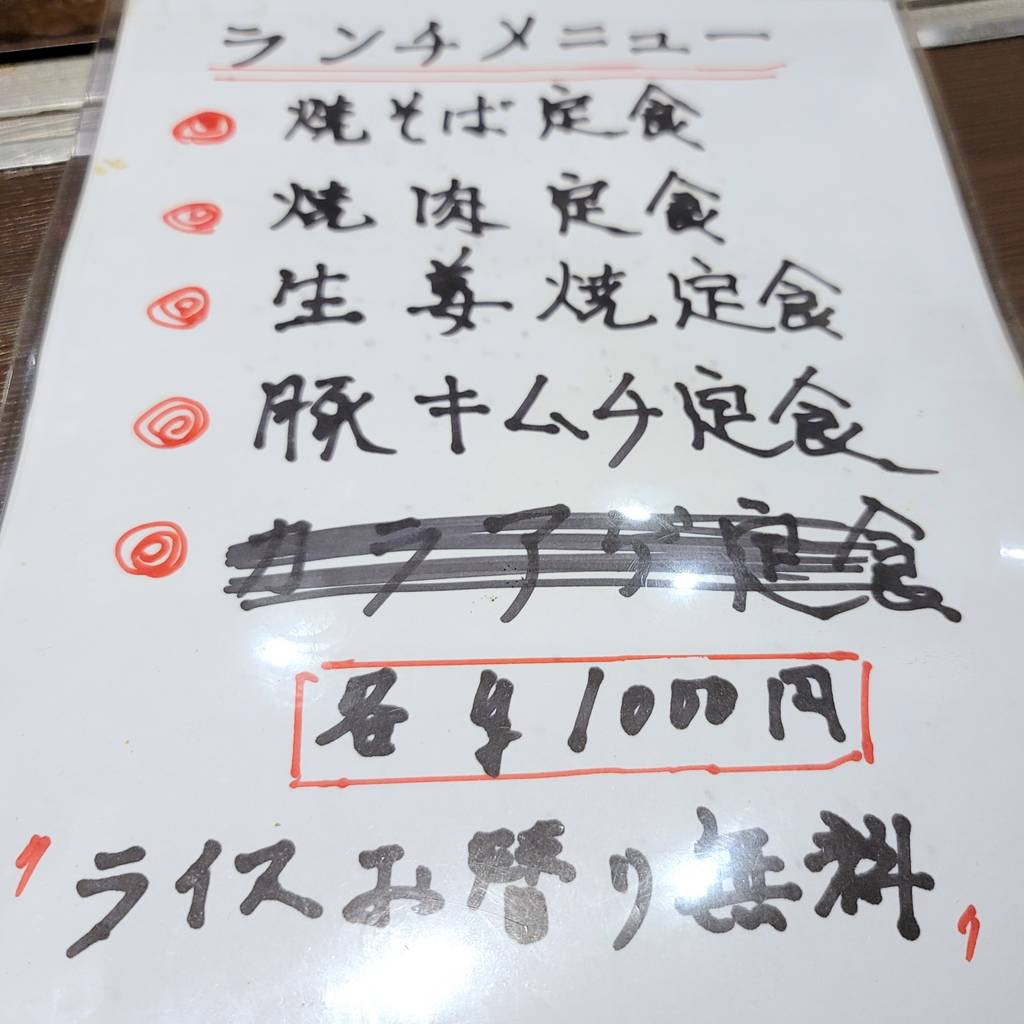 ランチメニュー
焼そば定食
焼肉定食
生姜焼定食
豚キムチ定食
カラアゲ定食
各¥1000円
ライスお替り無料